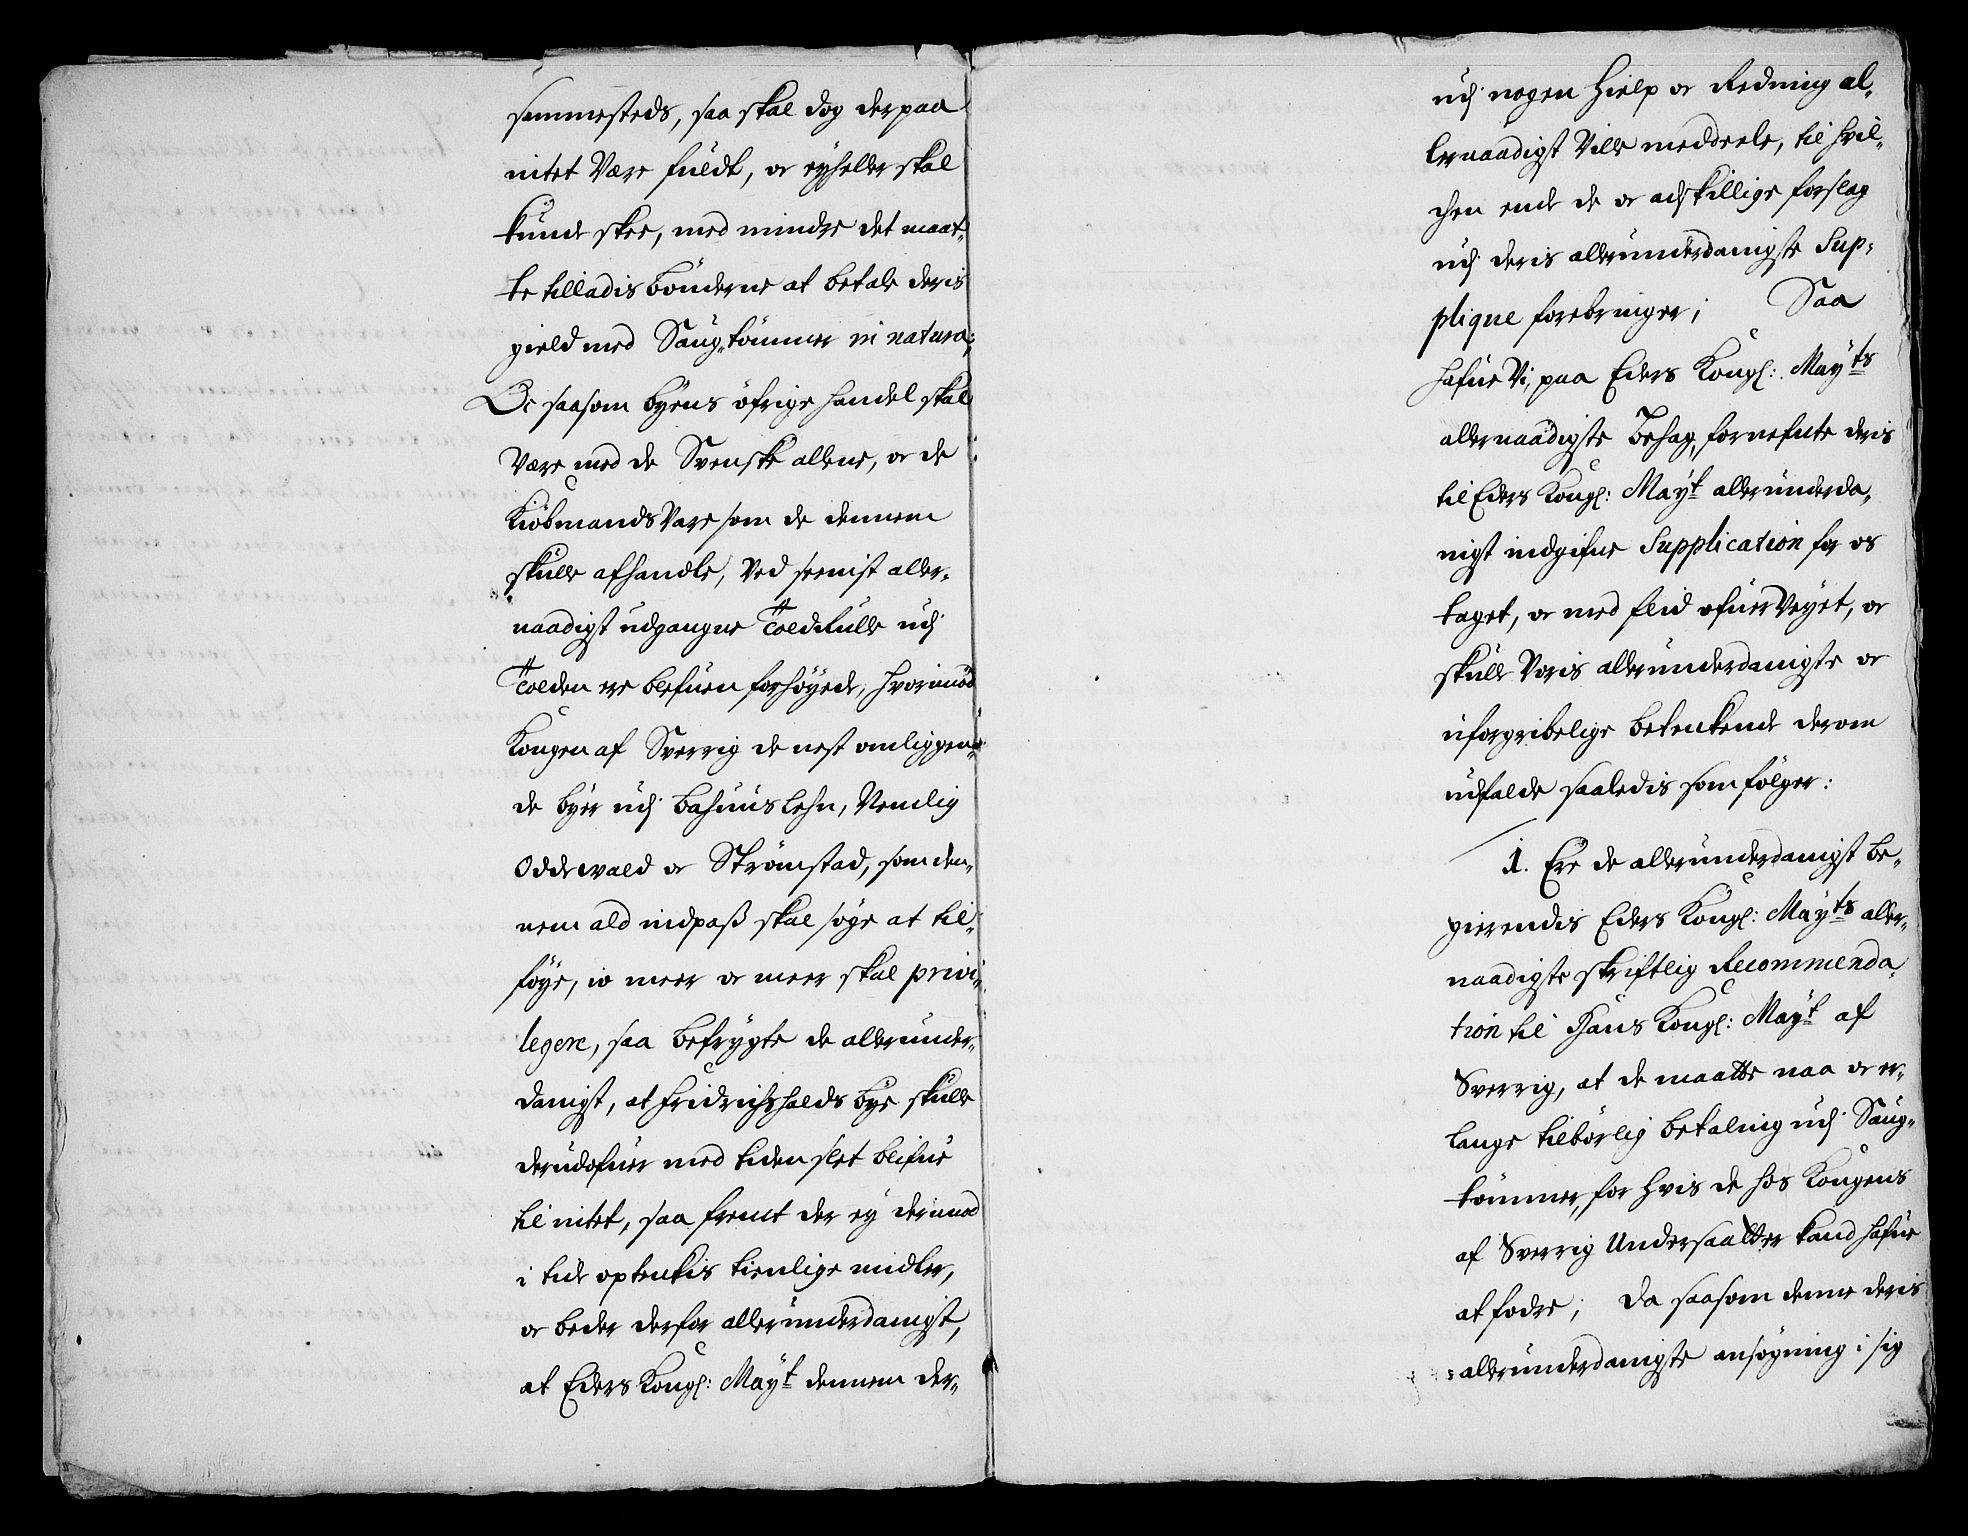 sammesteds, saa skal dog derpaa
intet Være fuldt, oc eyheller skal
kunde skee, med mindre det maat-
te tilladis bönderne at betale deris
gield med Saug-tömmer in natura;
Oc saasom byens öfrige handel skal
være med de Svenske allene, oc de
Kiöbmands Vare som de dennem
skulle afhandle, Ved seenist aller-
naadigst udgangne Toldrulle udj
Tolden ere blefuen forhöyede, hvorimod
Kongen af Sverrig de nest omliggen-
de byer udj Bahuus Lehn, Nemlig
Oddewald oc Strömstad, som den-
nem ald indpaß skal söge at til-
föye, io meer oc meer skal privi-
legere, saa befrygte de allerunder-
danigst, at Fridrichshalds bye skulle
derudofuer med tiden slet blifue
til intet, saa fremt der ey derimod
i tide optenkis tienlige midler,
oc beder derfor allerunderdanigst,
at Eders Kongl: Mayt dennem der-
udj nogen Hielp oc Redning al-
lernaadigst Ville meddeele, til hvil-
chen ende de oc adskillige forslag
udj deris allerunderdanigste Sup-
plique forebringer; Saa
hafue Vi, paa Eders Kongl: Mayts
allernaadigste Behag, fornefnte deris
til Eders Kongl: Mayt allerunderda-
nigst indgifne Supplication for os
taget, oc med flid ofuerVeyet, oc
skulle Voris allerunderdanigste oc
uforgribelige betenkende derom
udfalde saaledis som fölger:
1. Ere de allerunderdanigst be-
gierendis Eders Kongl: Mayts aller-
naadigste skriftlig Recommenda-
tion til Hans Kongl: Mayt af
Sverrig, at de maatte naa oc er-
lange tilbörlig betaling udj Saug-
tömmer, for hvis de hos Kongens
af Sverrig Undersaatter kand hafue
at fodre; Da saasom denne deris
allerunderdanigste ansögning i sig